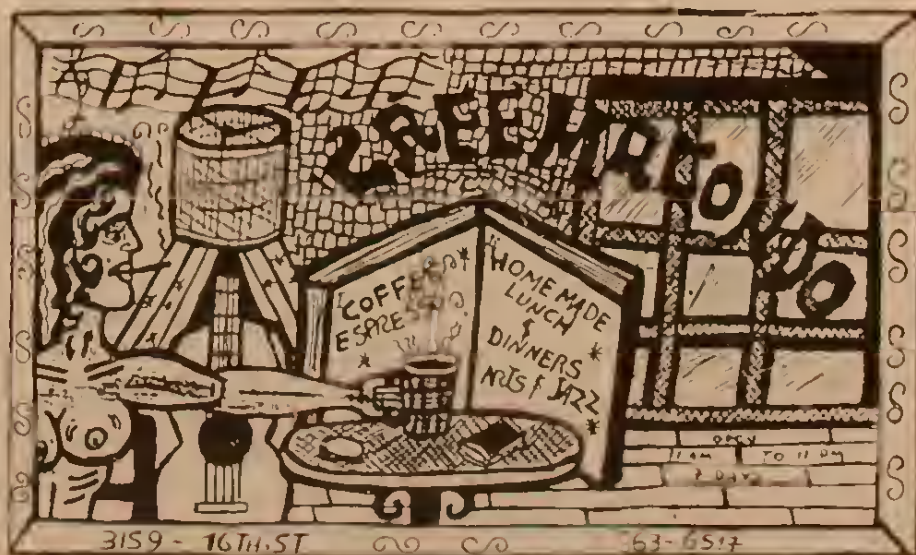 COFF
ESPRES
HOME MADE
LUNCH
&
DINNERS
ARTS & JAZZ
OPEN
AM TO 11 PM
7 DAYS
3159 - 16TH.ST 63-6517